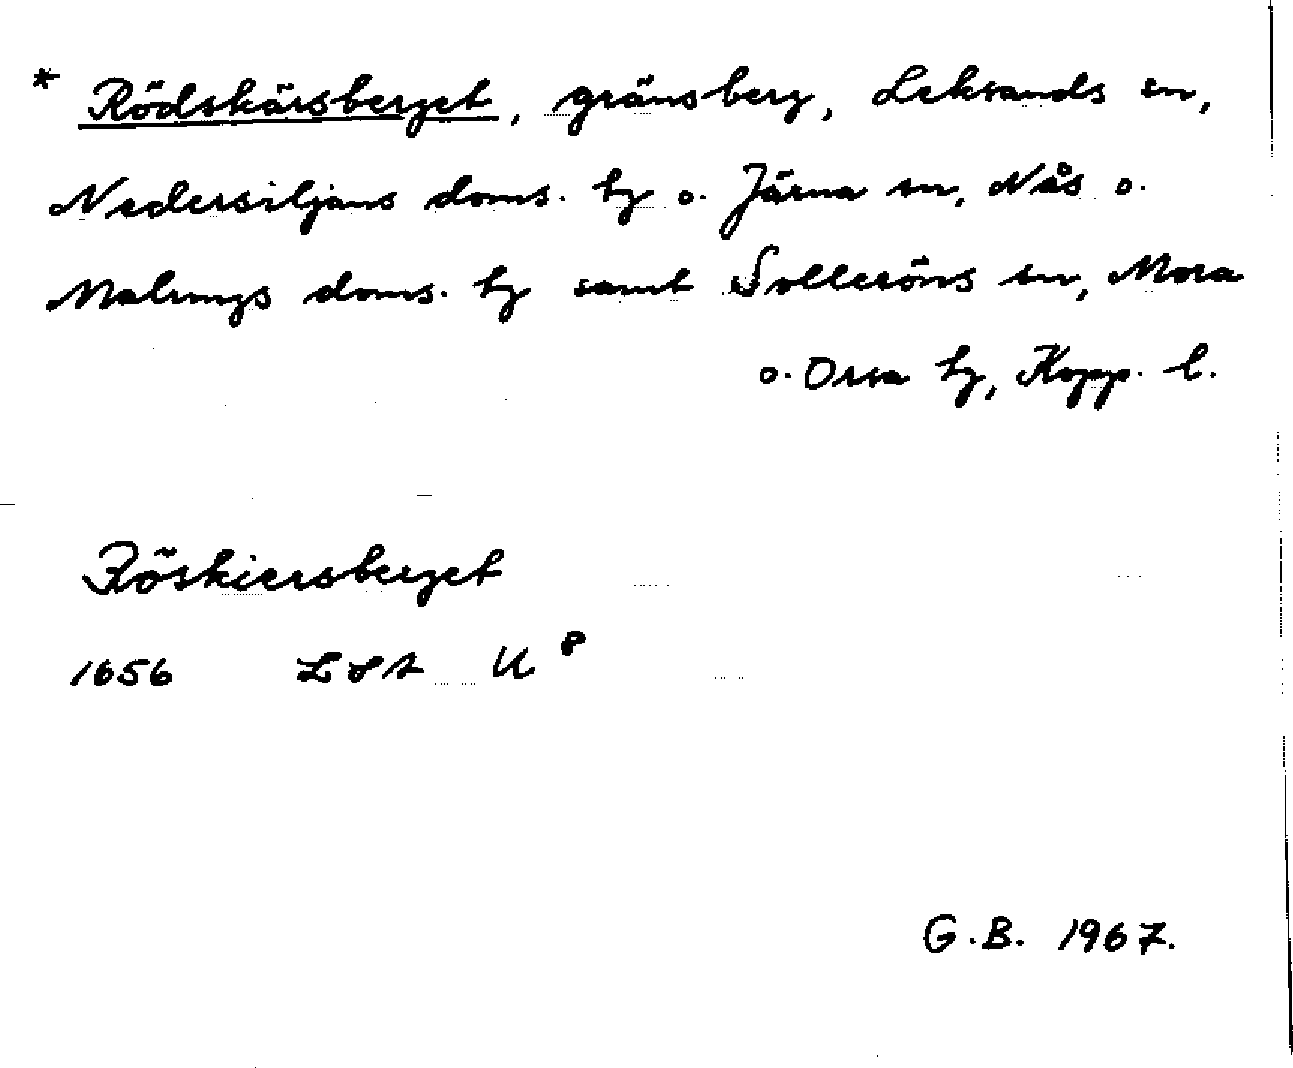 * Rödskärsberget, gränsberg, Leksands sn,
Nedersiljans doms. hg o. Järna sn, Nås o.
Malungs doms. hg samt Solleröns sn, Mora
o. Orsa hg, Kopp. l.
Röskiersberget
1656 LSA U 8
G.B. 1967.